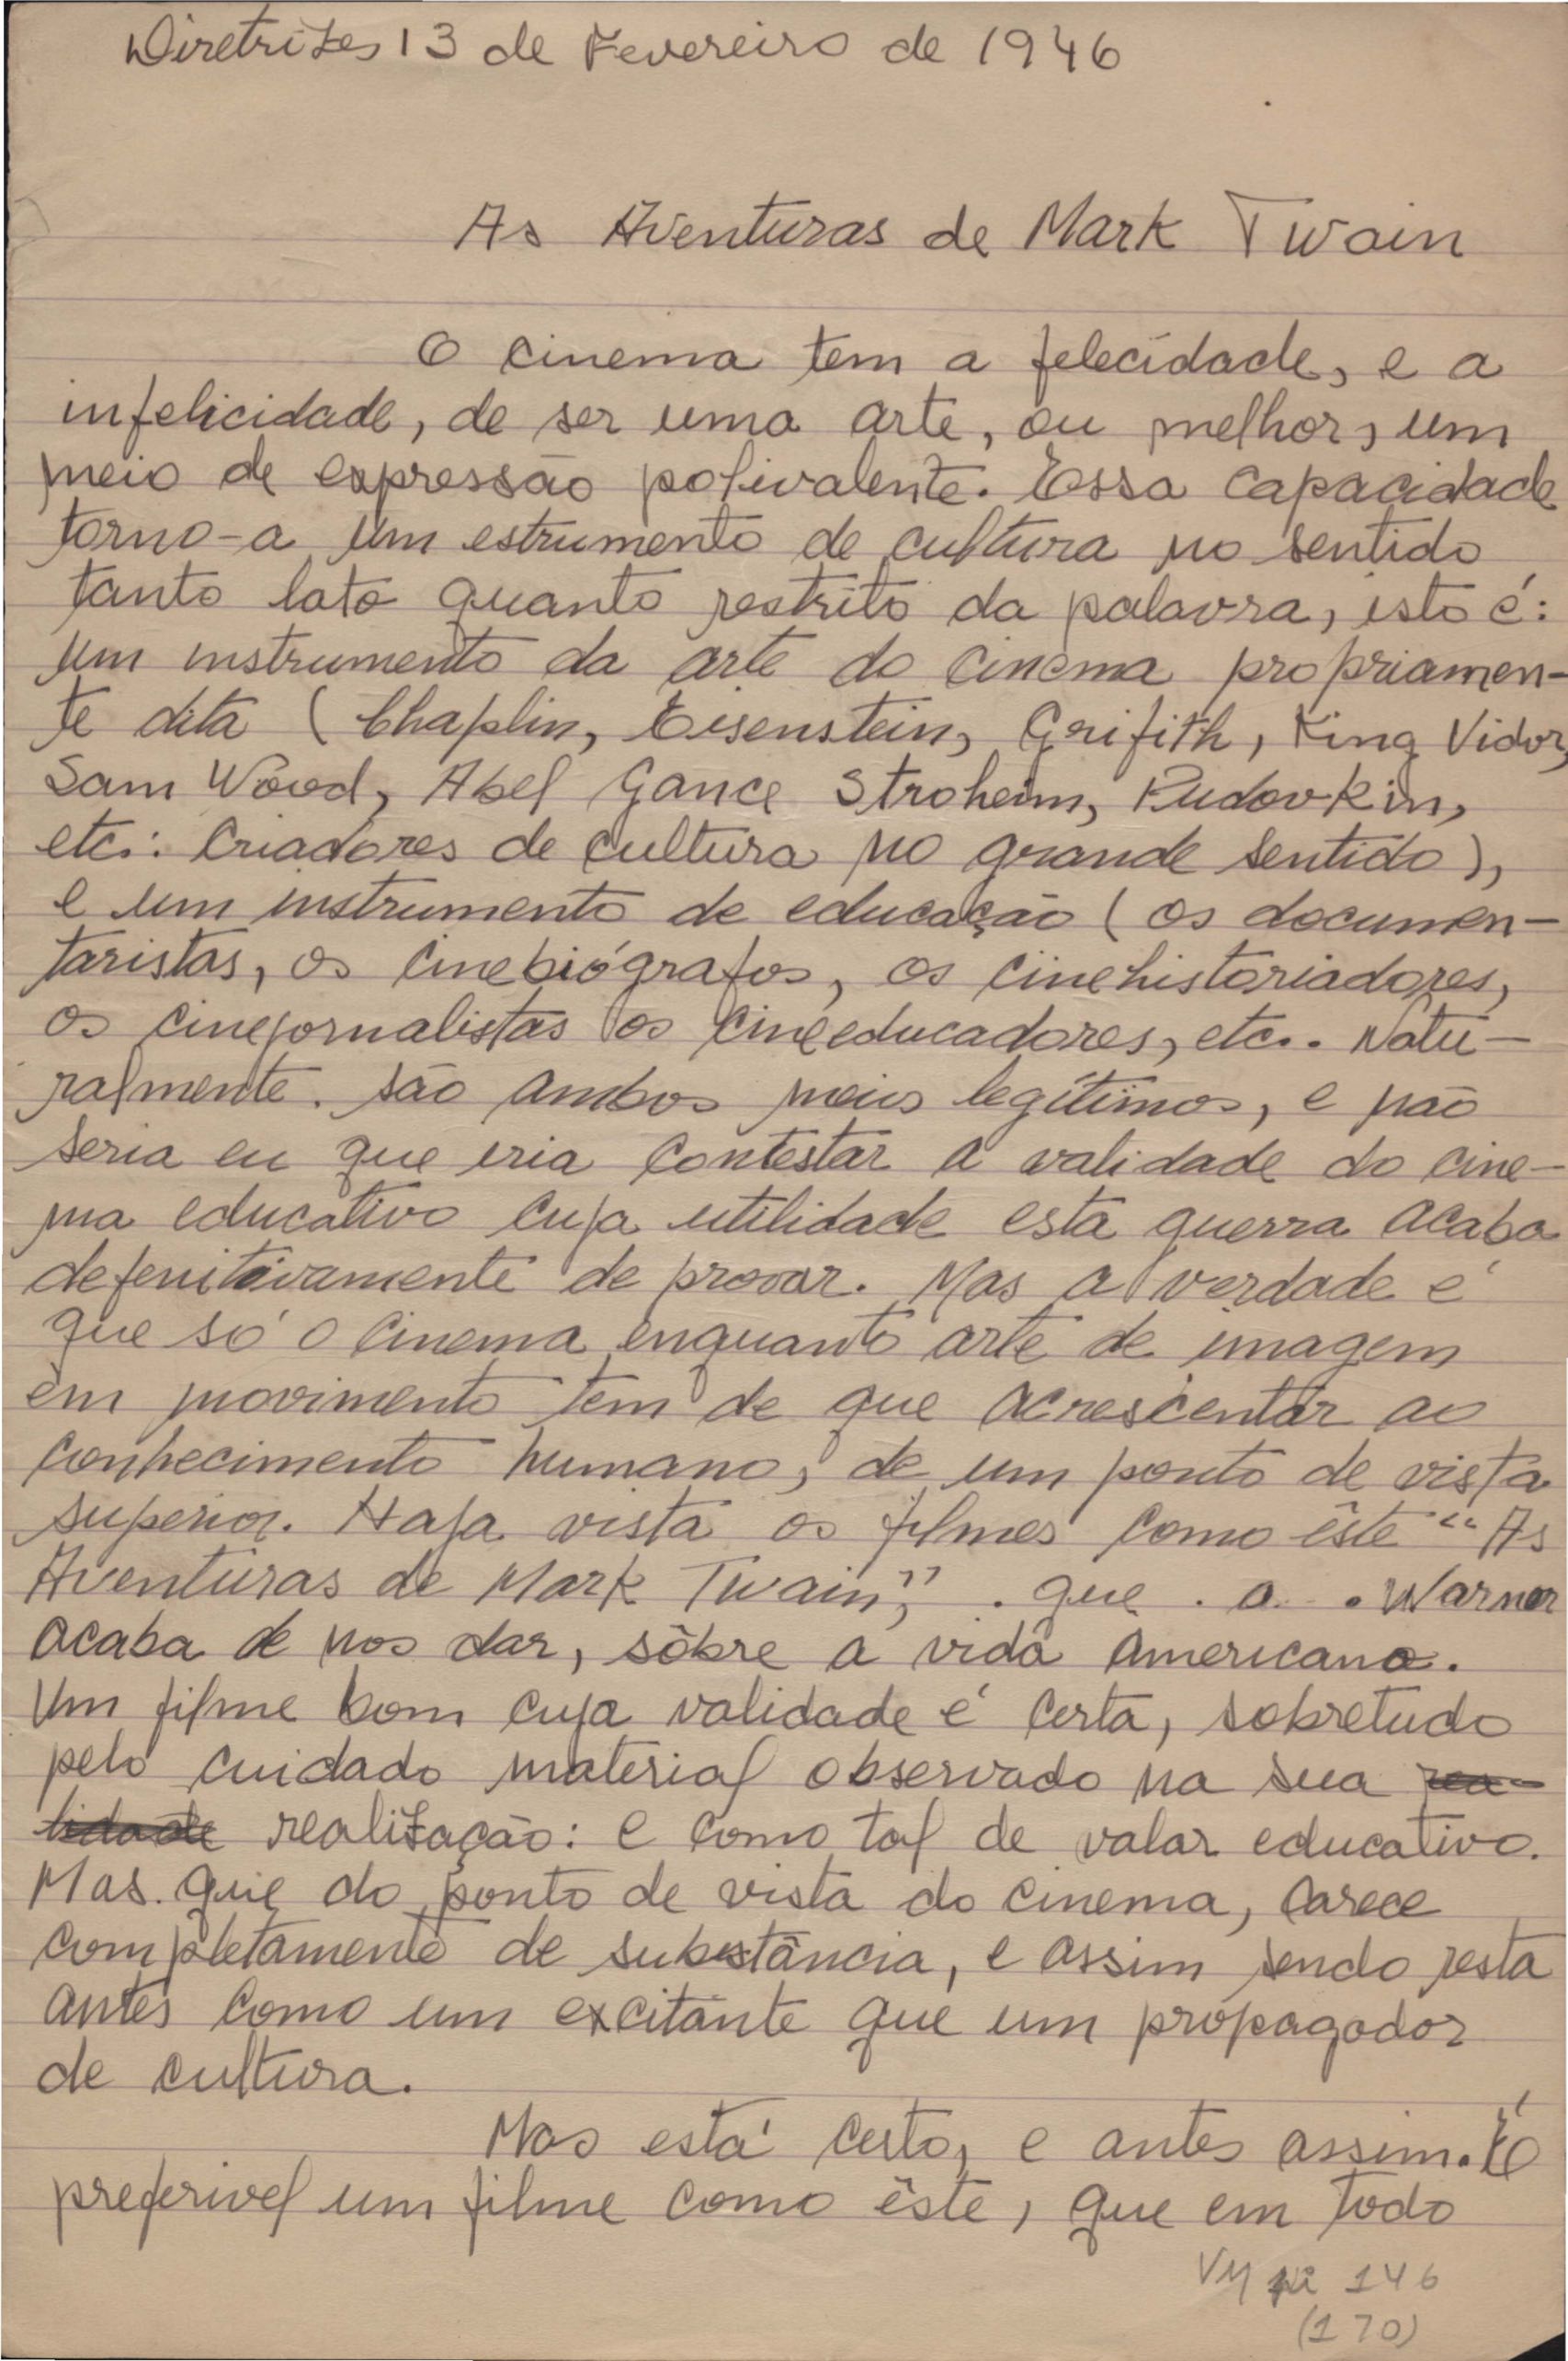 Diretrizes 13 de Fevereiro de 1946
As Aventuras de Mark Twain
O cinema tem a felecidade, e a
infelicidade, de ser uma arte, ou melhor, um
meio de expressão polivalente. Essa capacidade
torno-a um estrumento de cultura no sentido
tanto lato quanto restrito da palavra, isto é:
um instrumento da arte do cinema propriamen-
te dita (Chaplin, Eisenstein, Grifith, King Vidor,
Sam Wood, Abel Gance Stroheim, Pudovkin,
etc.: Criadores de cultura no grande sentido),
e um instrumento de educação (os documen-
taristas, os cinebiógrafos, os cinehistoriadores,
os cinejornalistas os cineeducadores, etc.. Natu-
ralmente. são ambos meios legítimos, e não
seria eu que iria contestar a validade do cine-
ma educativo cuja utilidade esta guerra acaba
defenitivamente de provar. Mas a verdade é
que só o cinema enquanto arte de imagem
em movimento tem de que acrescentar ao
conhecimento humano, de um ponto de vista
superior. Haja vista os filmes como êste "As
Aventuras de Mark Twain", . que . a . . Warner
acaba de nos dar, sôbre a vida americana.
Um filme bom cuja validade é certa, sobretudo
pelo cuidado material observado na sua rea-
lidade realização: e como tal de valar educativo.
Mas. que do ponto de vista do cinema, carece
completamente de substância, e assim sendo resta
antes como um excitante que um propagador
de cultura.
Mas está certo, e antes assim. É
preferivel um filme como êste, que em todo
VM 146
(170)